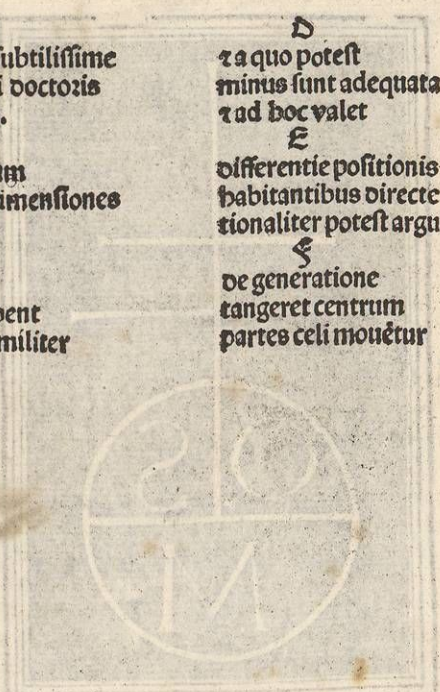 subtilissime
i doctoris
.
um
imensiones
bent
militer
D
⁊ a quo potest
minus sunt adequata
⁊ ad hoc valet
E
differentie positionis
habitantibus directe
tionaliter potest argu
F
de generatione
tangeret centrum
partes celi mouētur